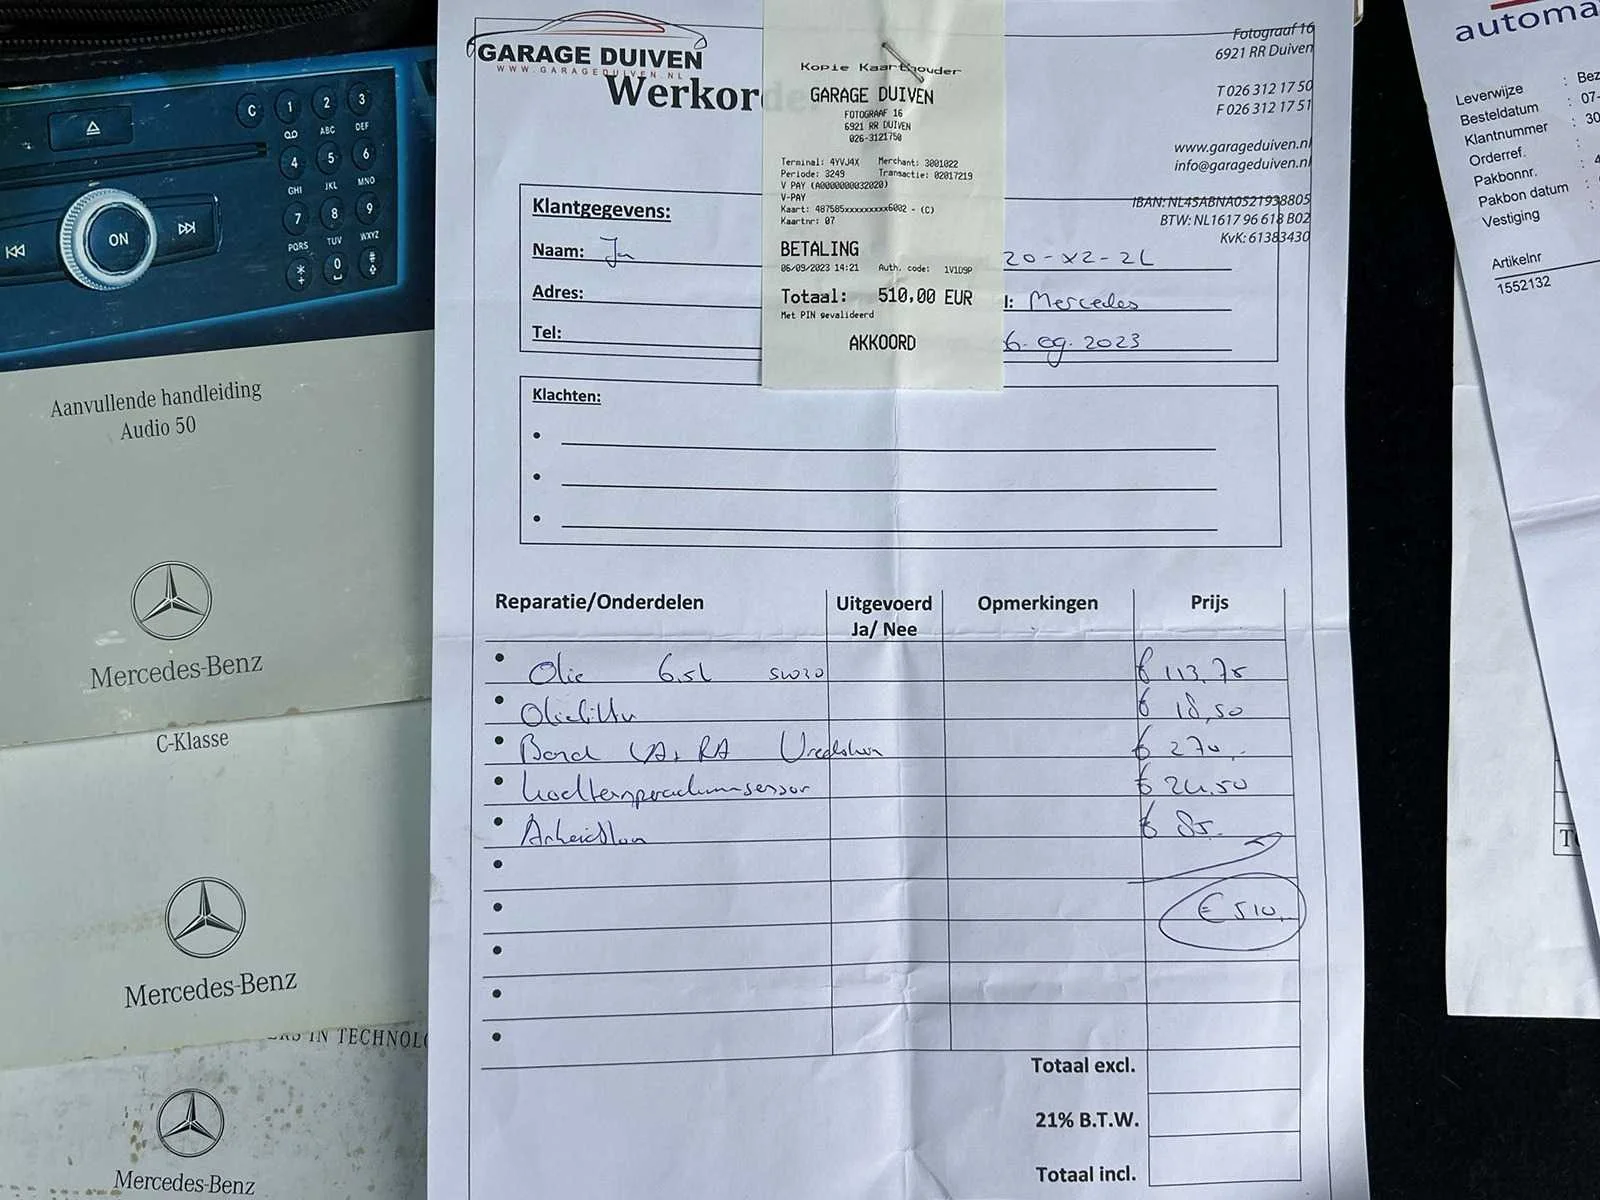 C 1 2 3
ABC DEF
4 5 6
GHI JKL MNO
7 8 9
PQRS TUV WXYZ
* 0 #
ON
Aanvullende handleiding
Audio 50
Mercedes-Benz
C-Klasse
Mercedes-Benz
IN TECHNOL
Mercedes-Benz
GARAGE DUIVEN
WWW.GARAGEDUIVEN.NL
Werkor
Fotograaf 16
6921 RR Duiven
T 026 312 17 50
F 026 312 17 51
www.garageduiven.nl
info@garageduiven.nl
IBAN: NL45ABNA0521938805
BTW: NL1617 96 618 B02
KvK: 61383430
Kopie Kaarthouder
GARAGE DUIVEN
FOTOGRAAF 16
6921 RR DUIVEN
026-3121750
Terminal: 4YVJ4X Merchant: 3001022
Periode: 3249 Transactie: 02017219
V PAY (A0000000032020)
V-PAY
Kaart: 487585xxxxxxxxx6002 - (C)
Kaartnr: 07
BETALING
06/09/2023 14:21 Auth. code: 1V1D9P
Totaal: 510,00 EUR
Met PIN gevalideerd
AKKOORD
Klantgegevens:
Naam: 20-XZ-ZL
Adres: l: Mercedes
Tel: 6-09-2023
Klachten:
Reparatie/Onderdelen Uitgevoerd Ja/ Nee Opmerkingen Prijs
Olie 6.5L 5W30 € 113,75
Oliefilter € 18,50
Band VA, RA Vredestein € 270,-
Arbeidsloon € 85,-
€ 510,-
Totaal excl.
21% B.T.W.
Totaal incl.
automa
Leverwijze : Bez
Besteldatum : 07-
Klantnummer : 30
Orderref. :
Pakbonnr. : 4
Pakbon datum :
Vestiging :
Artikelnr
1552132